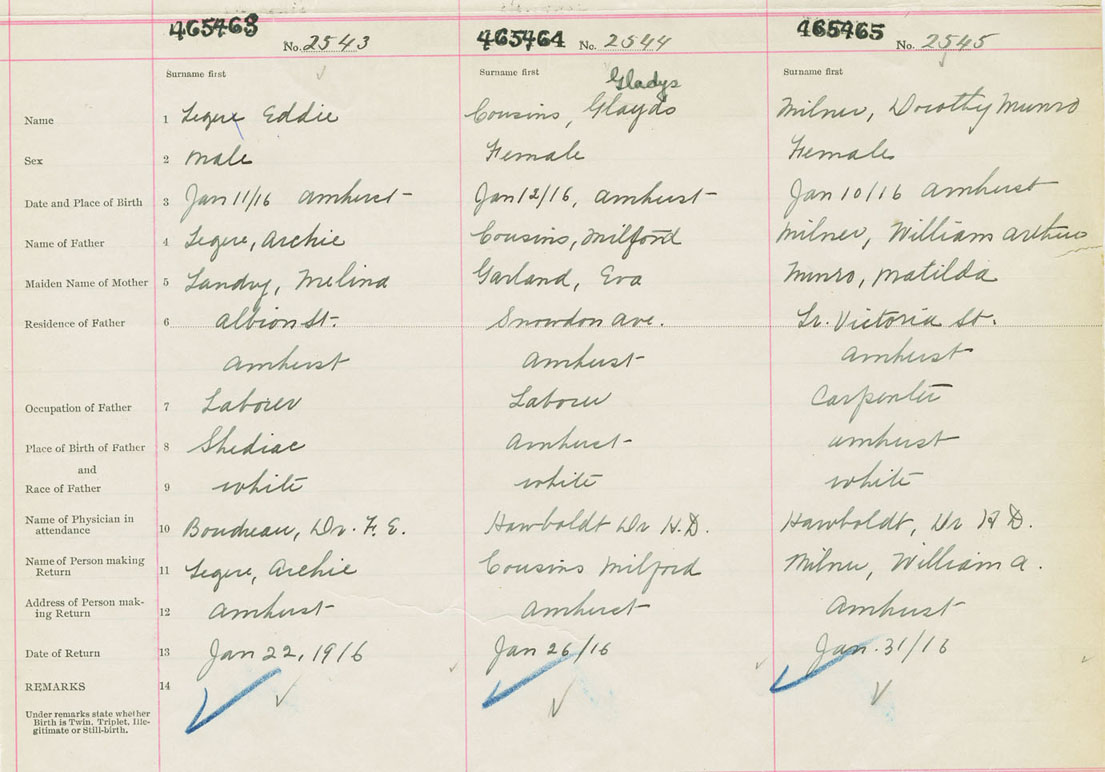 465463 No. 2543 465464 No. 2544 465465 No. 2545
Surname first Surname first Gladys Surname first
Name 1 Legere Eddie Cousins, Glayds Milner, Dorothy Munro
Sex 2 male Female Female
Date and Place of Birth 3 Jan 11/16 Amherst Jan 12/16, Amherst Jan 10/16 Amherst
Name of Father 4 Legere, Archie Cousins, Milford Milner, William Arthur
Maiden Name of Mother 5 Landry, Melina Garland, Eva Munro, Matilda
Residence of Father 6 Albion St. Snowdon Ave. Victoria St.
Amherst Amherst Amherst
Occupation of Father 7 Laborer Laborer Carpenter
Place of Birth of Father 8 Shediac Amherst Amherst
and
Race of Father 9 white white white
Name of Physician in
attendance 10 Boudreau, Dr. F. E. Hawboldt Dr H.D. Hawboldt, Dr H D.
Name of Person making
Return 11 Legere, Archie Cousins Milford Milner, William A.
Address of Person mak-
ing Return 12 Amherst Amherst Amherst
Date of Return 13 Jan 22, 1916 Jan 26/16 Jan. 31/16
REMARKS 14
Under remarks state whether
Birth is Twin, Triplet, Ille-
gitimate or Still-birth.